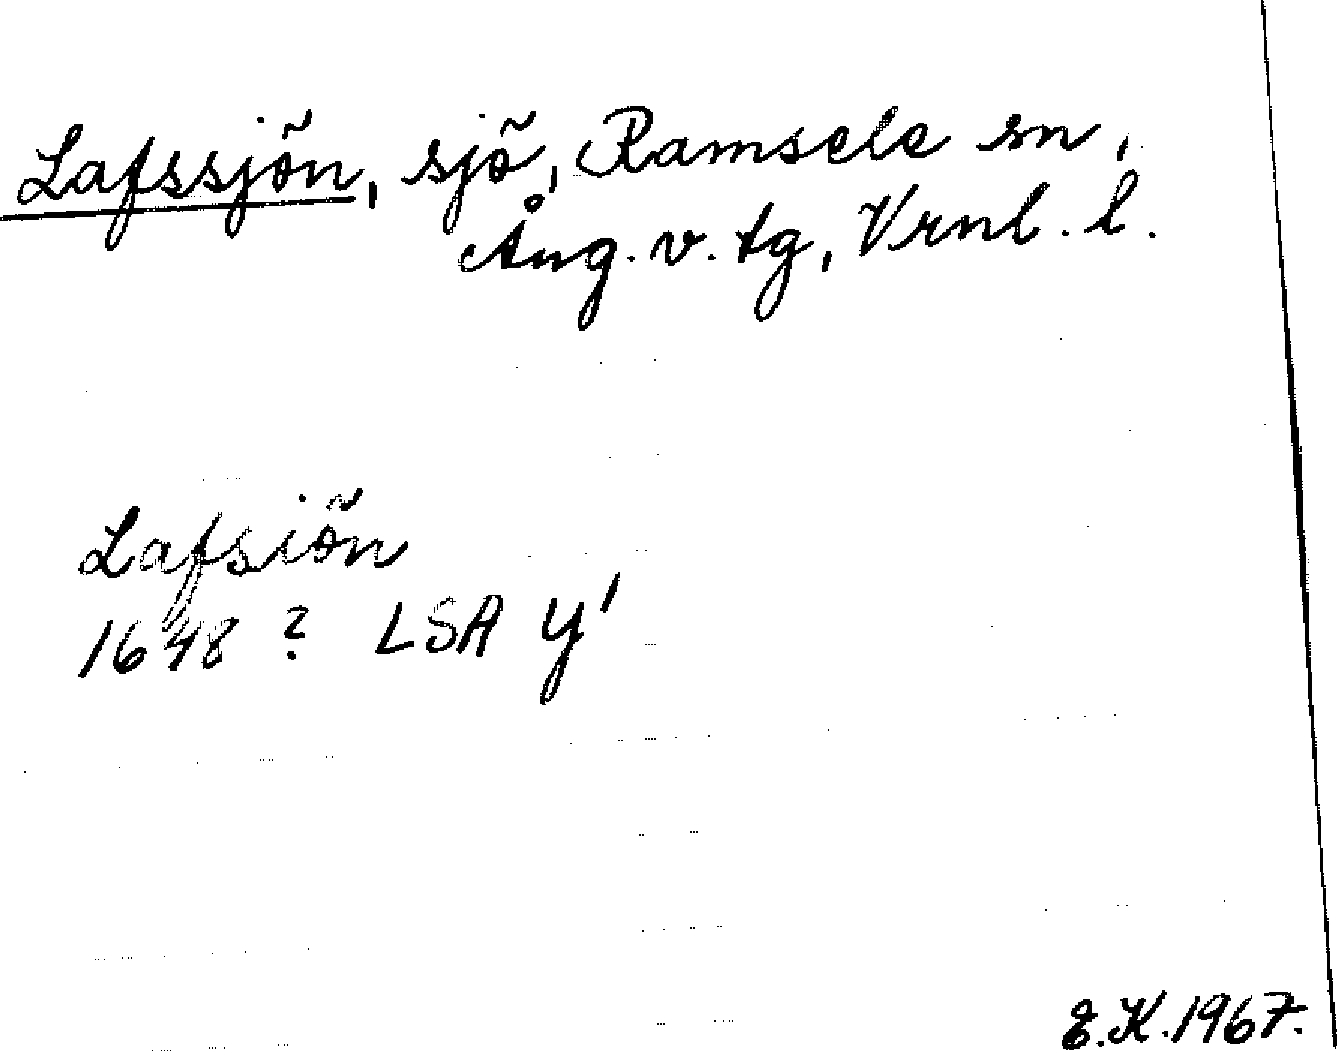 Lafssjön, sjö, Ramsele sn,
Ång. v. tg, Vrnl. l.
Lafsiön
1648? LSA Y'
E.K. 1967.